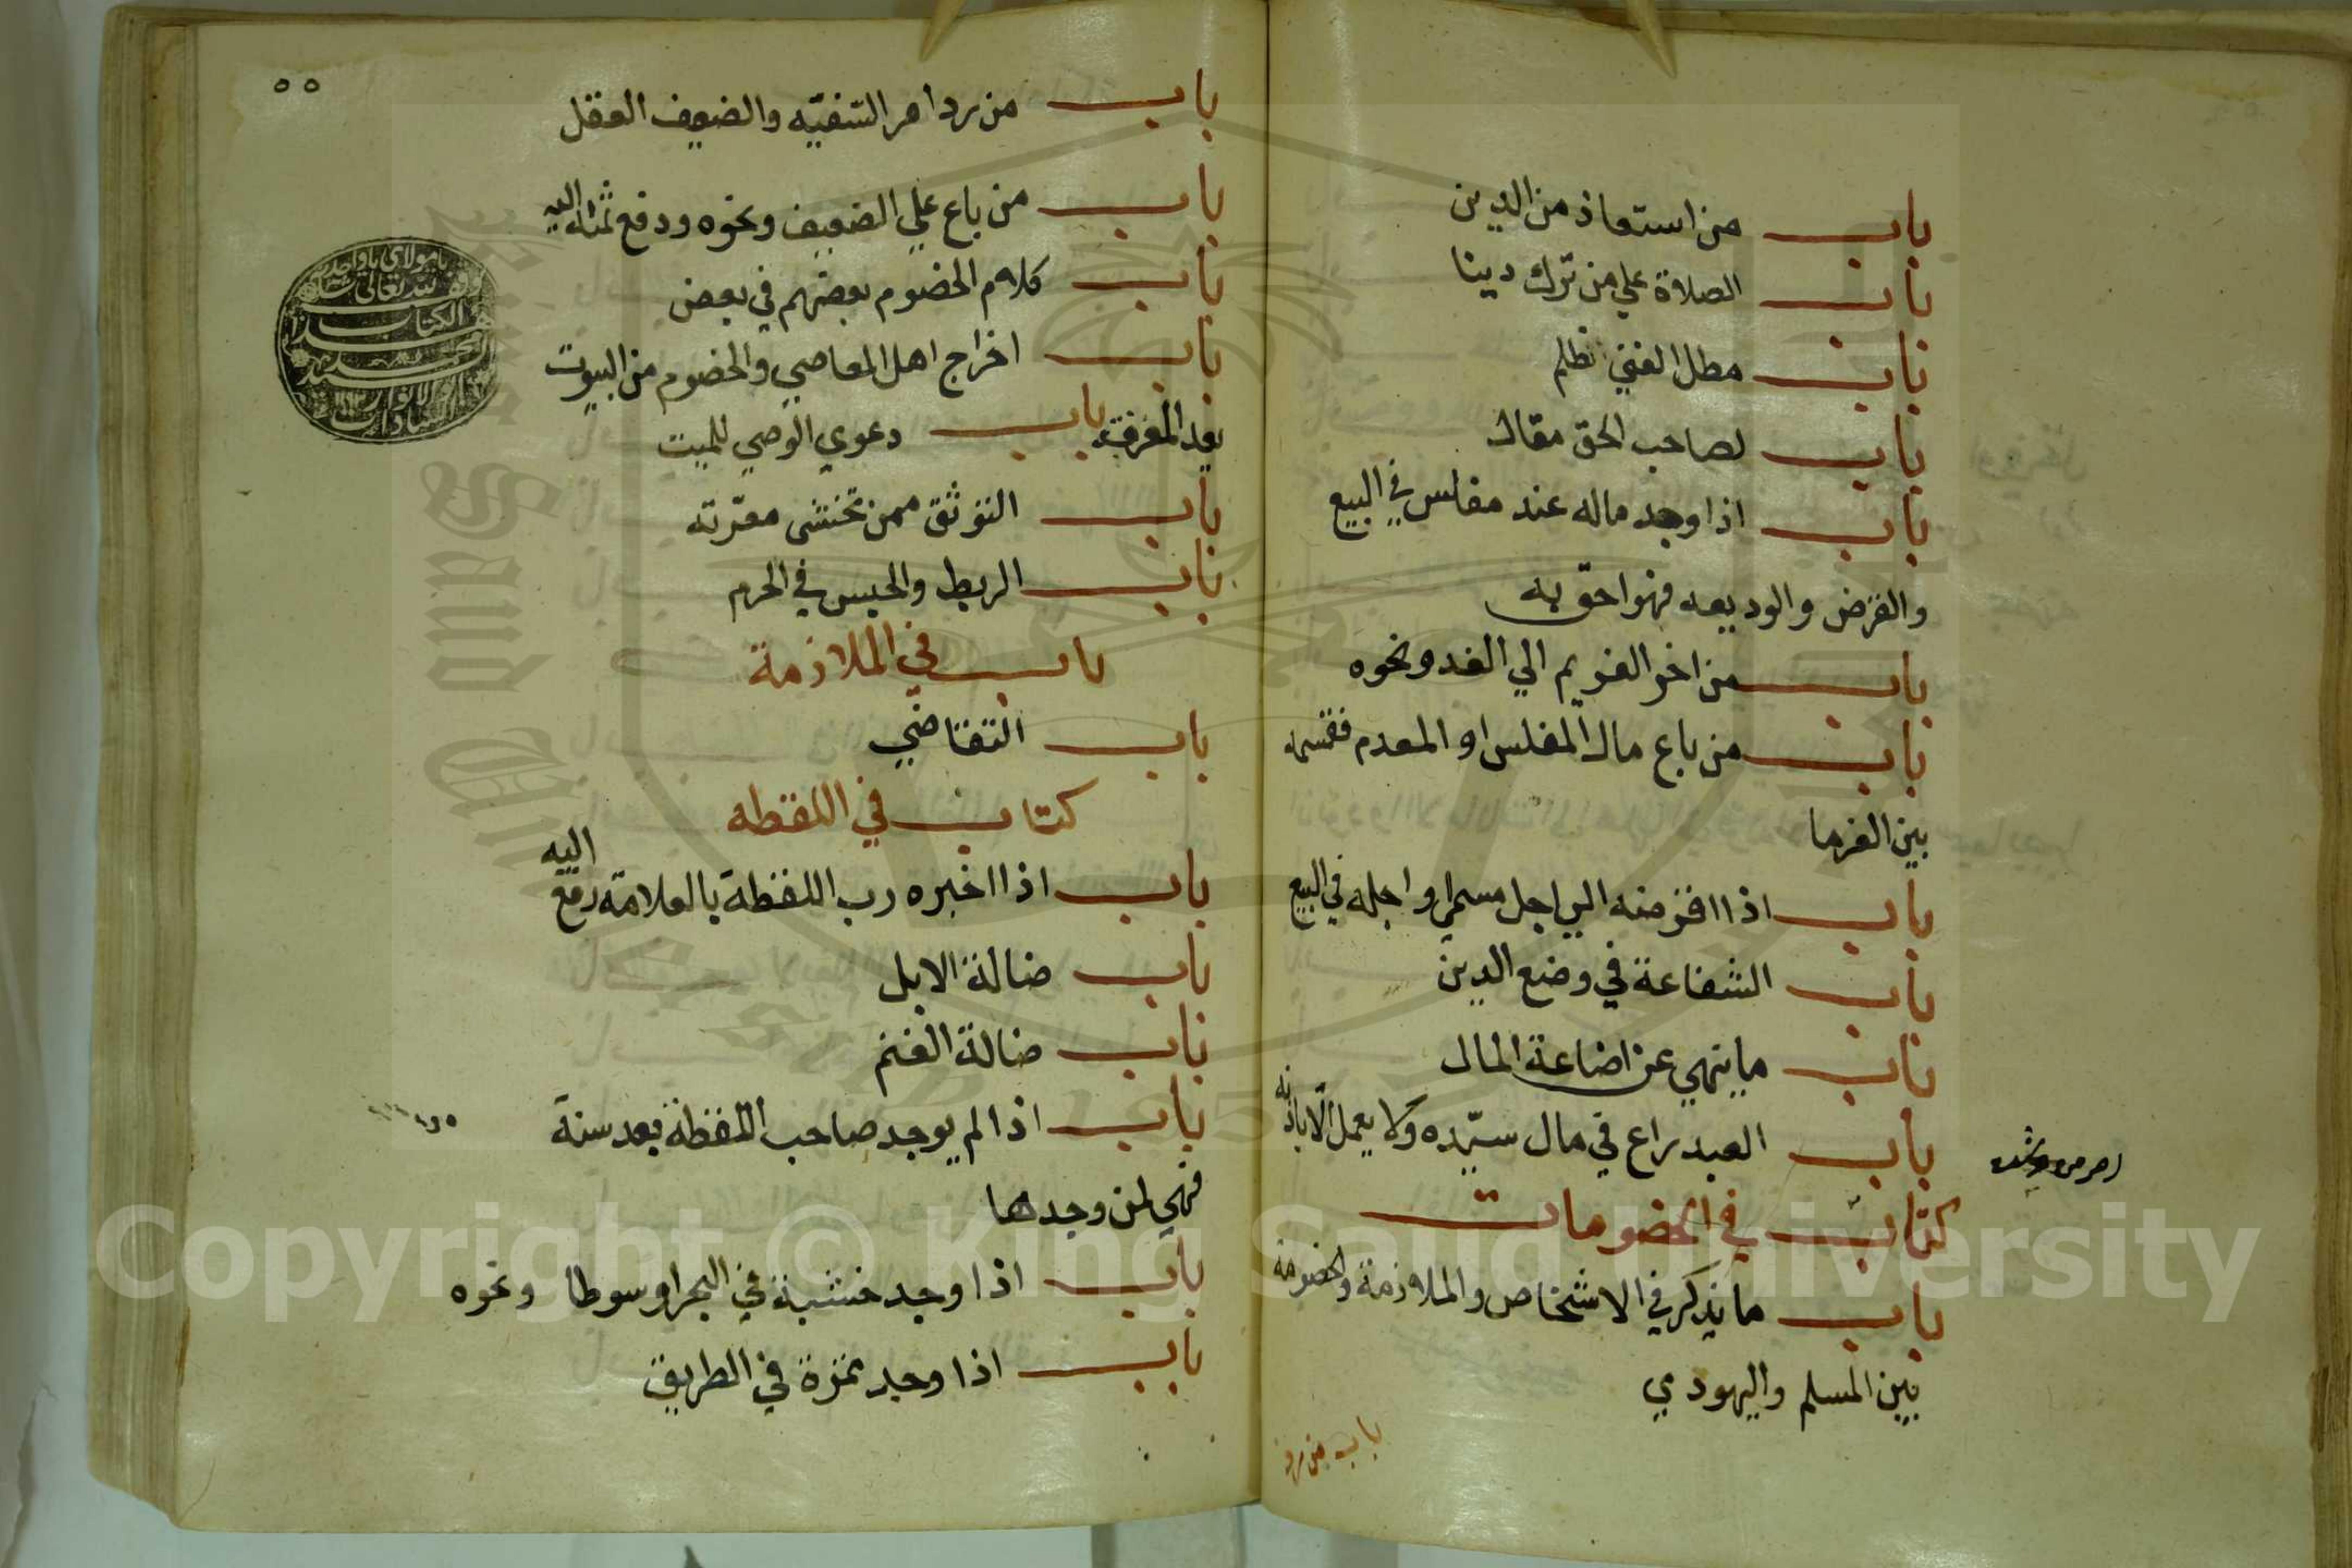 باب من استعاذ من الدين
باب الصلاة علي من ترك دينا
باب مطل الغني ظلم
باب لصاحب الحق مقال
باب اذا وجد ماله عند مفلس في البيع
والقرض والوديعه فهو احق به
باب من اخر الغريم الي الغد ونحوه
باب من باع مال المفلس او المعدم فقسمه
بين الغرما
باب اذا اقرضه الي اجل مسمي او اجله في البيع
باب الشفاعة في وضع الدين
باب ما ينهي عن اضاعة المال
باب العبد راع في مال سيّده ولا يعمل الّا باذنه
كتاب في الخصومات
باب ما يذكر في الاشخاص والملازمة والخصومة
بين المسلم واليهودي
باب من رد
٥٥
باب من رد امر السّفيّه والضعيف العقل
باب من باع علي الضعيف ونحوه ودفع ثمنه اليه
باب كلام الخصوم بعضهم في بعض
باب اخراج اهل المعاصي والخصوم من البيوت
بعد المعرفة باب دعوي الوصي للميت
باب التوثق ممن تخشى معرّته
باب الربط والحبس في الحرم
باب في الملازمة
باب التقاضي
كتاب في اللقطه
باب اذا اخبره رب اللقطة بالعلامة دفع اليه
باب ضالة الابل
باب ضالة الغنم
باب اذا لم يوجد صاحب اللقطة بعد سنة
فهي لمن وجدها
باب اذا وجد خشبة في البحر او سوطا ونحوه
باب اذا وجد تمرة في الطريق
Copyright © King Saud University